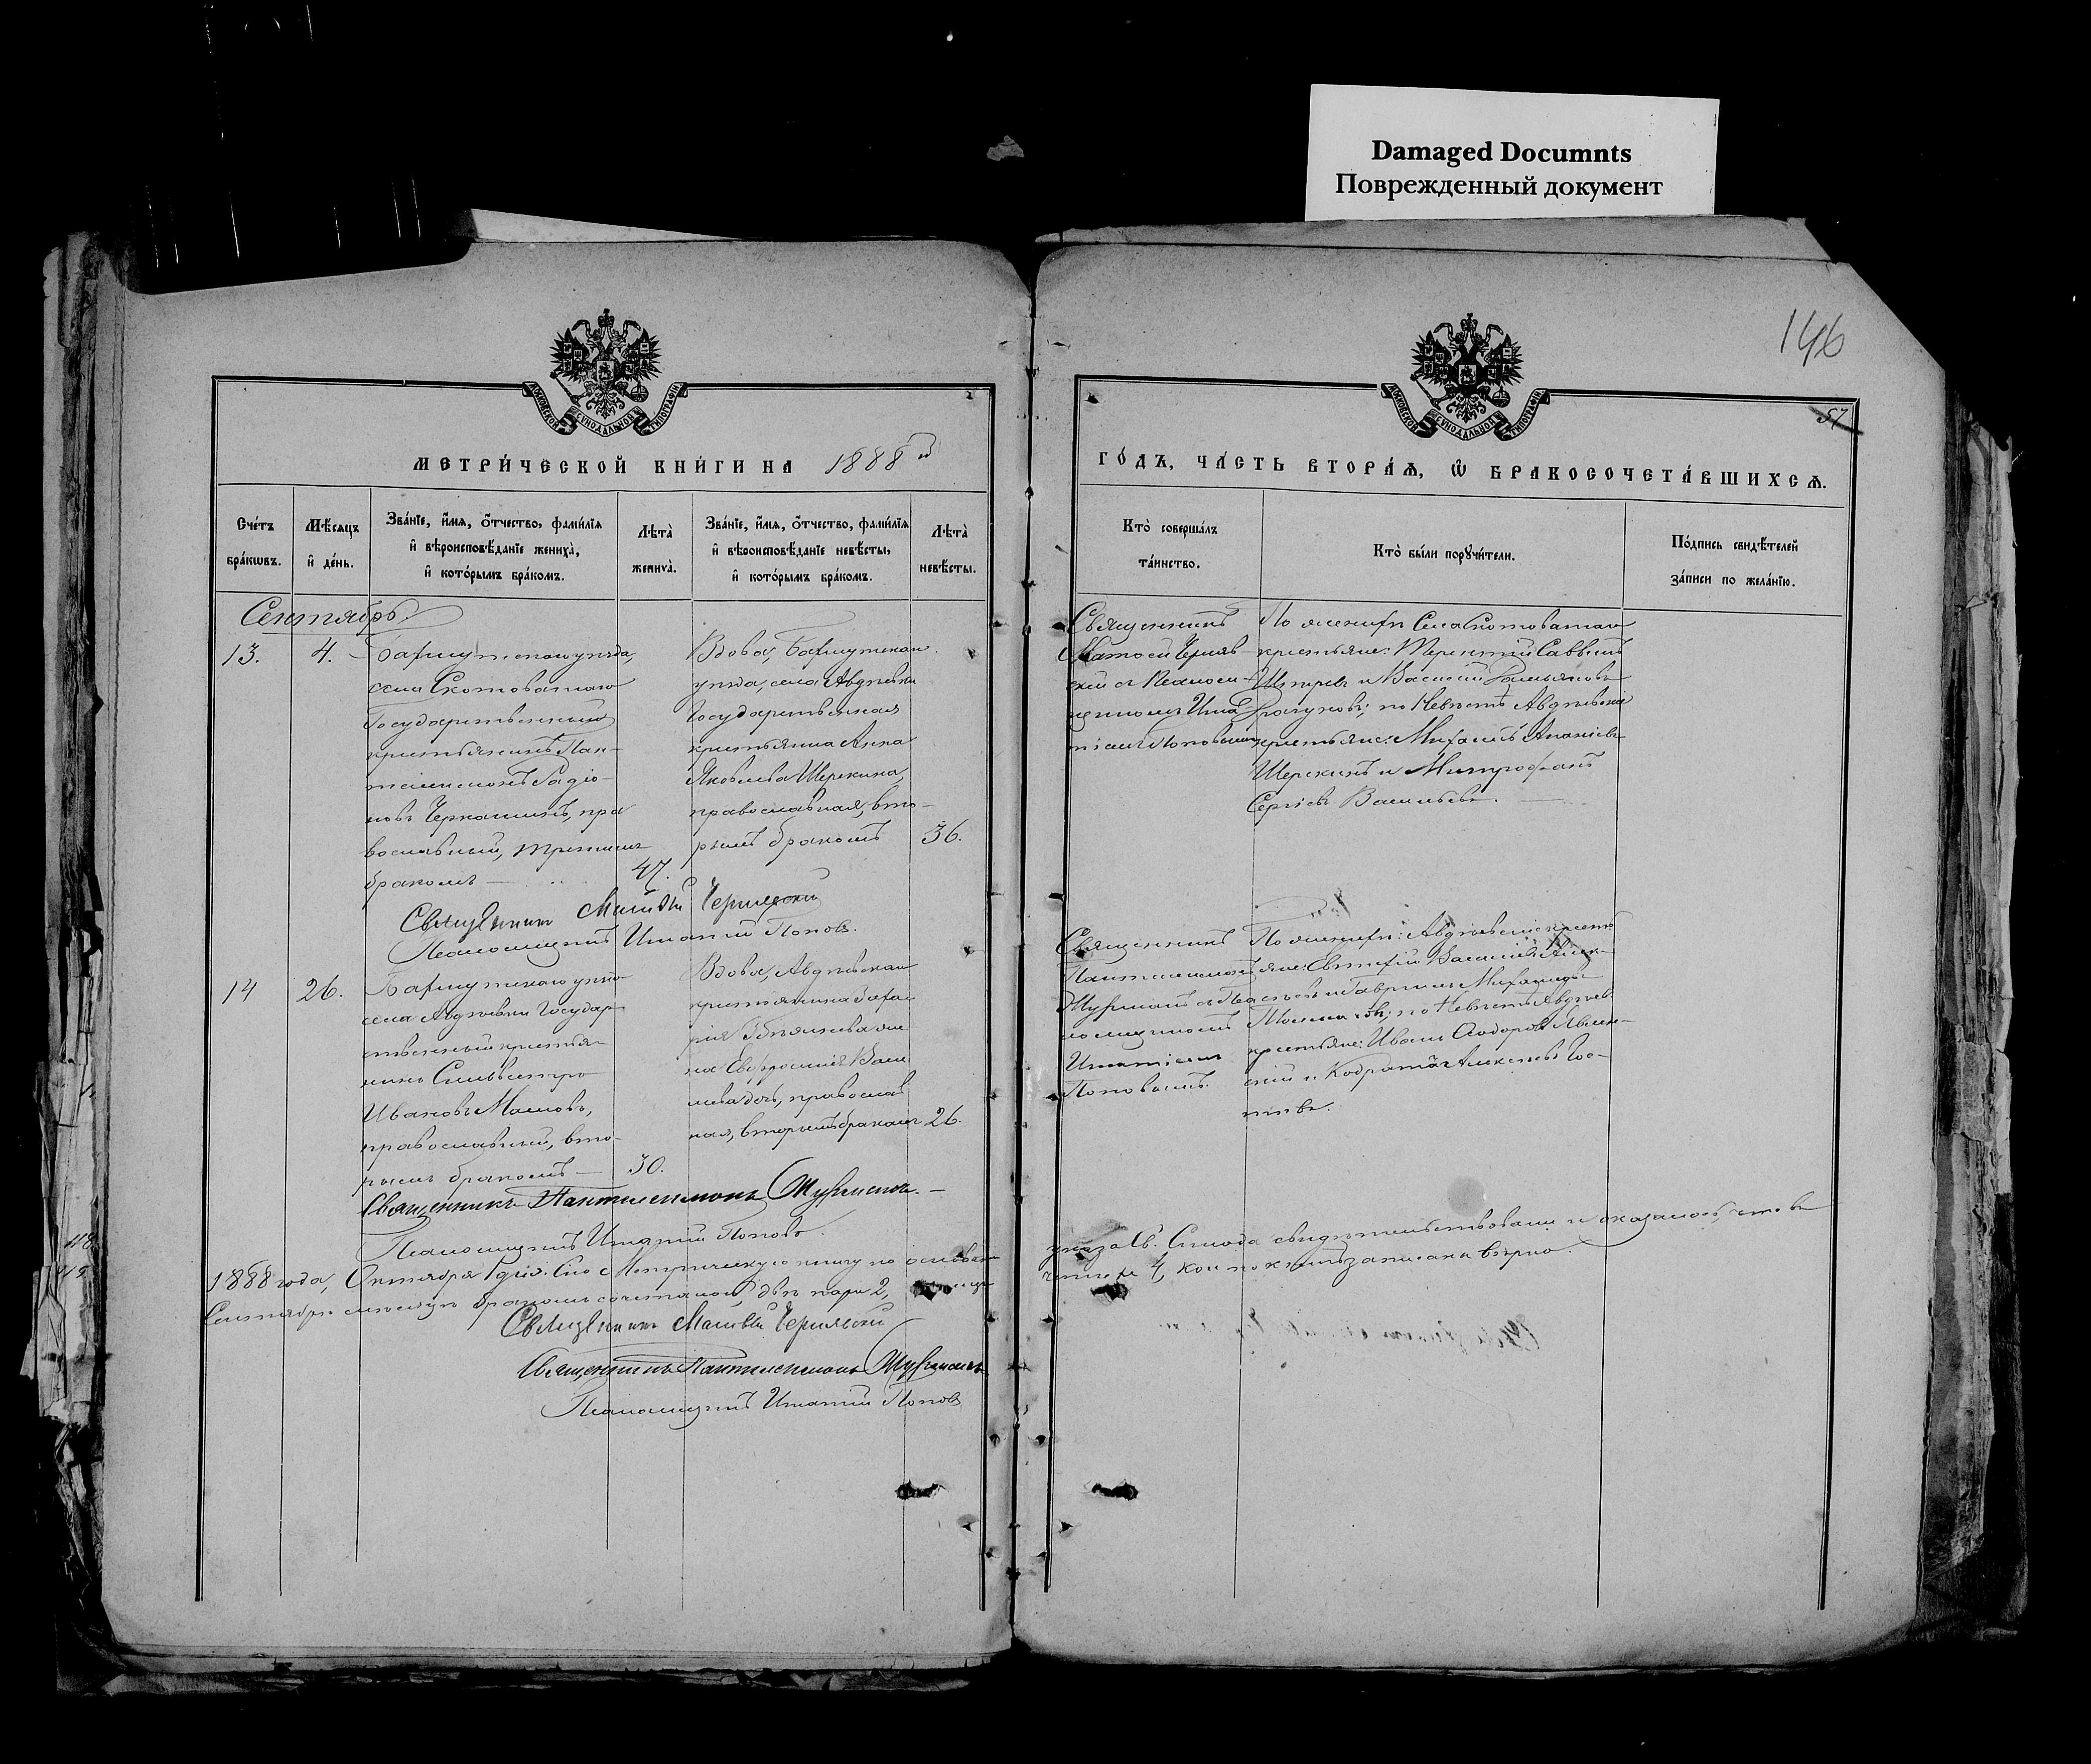 Damaged Documnts
Поврежденный документ
146
57
МОСКОВСКОЙ СѴНОДАЛЬНОЙ ТИПОГРАФІИ
МОСКОВСКОЙ СѴНОДАЛЬНОЙ ТИПОГРАФІИ
МЕТРИ́ЧЕСКОЙ КНИ́ГИ НА 1888 й
ГО́ДЪ, ЧА́СТЬ ВТОРА́Ѧ, Ѽ БРАКОСОЧЕТА́ВШИХСѦ.
Сче́тъ бра́кѡвъ.
Мѣ́сяцъ и҆ де́нь.
Зва́нїе, и҆́мѧ, ѻ҆́тчество, фами́лїѧ
и҆ вѣроисповѣ́данїе жениха̀,
и҆ кото́рымъ бра́комъ.
Лѣта̀ жениха̀.
Зва́нїе, и҆́мѧ, ѻ҆́тчество, фами́лїѧ
и҆ вѣроисповѣ́данїе невѣ́сты,
и҆ кото́рымъ бра́комъ.
Лѣта̀ невѣ́сты.
Кто̀ соверша́лъ
та́инство.
Кто̀ бы́ли порꙋчи́тели.
По́дпись свидѣ́телей
за́писи по жела́нїю.
Сентябрь
13.
4.
Бахмутскаго уѣзда,
села Скотоватаго
Государственный
крестьянинъ Пан-
телеимонъ Радіо-
новъ Черкашинъ, пра
вославный, третьимъ
бракомъ
47.
Вдова, Бахмутскаго
уѣзда, села Авдѣевки
Государственная
крестьянка Анна
Яковлева Шерекина,
православная, вто-
рымъ бракомъ
36.
Священникъ
Матѳей Черняв-
скій съ Псалом-
щикомъ Игна
тіемъ Поповымъ
По женихѣ: Села Скотоватаго
крестьяне: Терентій Саввинъ
и Василій
по Невѣстѣ Авдѣевскіе
крестьяне: Михаилъ Ананіевъ
Шерекинъ и Митрофанъ
Сергіевъ Васильевъ.
Священникъ Матвѣй Чернявскій
Псаломщикъ Игнатій Поповъ.
14
26.
Бахмутскаго уѣзда
села Авдѣевки Государ
ственный крестья-
нинъ Сильвестръ
Ивановъ Масловъ,
православный, вто-
рымъ бракомъ
30.
Вдова, Авдѣевскаго
крестьянина Заха
рія жe
на Евфросинія Васи
льева дочь, православ
ная, вторымъ бракомъ
26.
Священникъ
Пантелеимонъ
съ Пса
ломщикомъ
Игнатіемъ
Поповымъ.
По женихѣ: Авдѣевскіе кресть
яне: Евтихій Васильевъ
и Гавріилъ Михайловъ
по Невѣстѣ Авдѣев-
крестьяне: Иванъ Ѳеодоровъ Явлен-
скій и Кодратъ Алексѣевъ
Священникъ Пантелеимонъ
Псаломщикъ Игнатій Поповъ.
1888 года, Октября 1 дня. Сію Метрическую книгу по основан
указа Св. Синода свидѣтельствовали и оказалось, что въ
Сентябрѣ мѣсяцѣ бракомъ сочетаной двѣ пары 2,
кои по книгѣ записаны вѣрно.
Священникъ Матвѣй Чернявскій
Священникъ Пантелеимонъ
Псаломщикъ Игнатій Поповъ